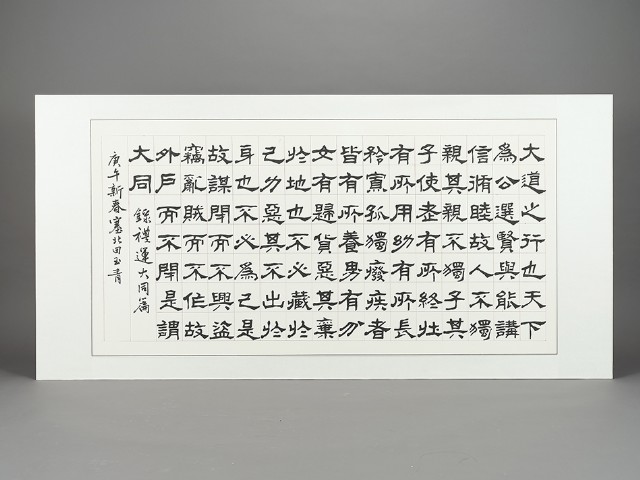 大道之行也天下
為公選賢與能講
信脩睦故人不獨
親其親不獨子其
子使老有所終壯
有所用幼有所長
矜寡孤獨癈疾者
皆有所養男有分
女有歸貨惡其棄
於地也不必藏於
己力惡其不出於
身也不必為己是
故謀閉而不興盜
竊亂賊而不作故
外戶而不閉是謂
大同
錄禮運大同篇
庚午新春塞北田玉青